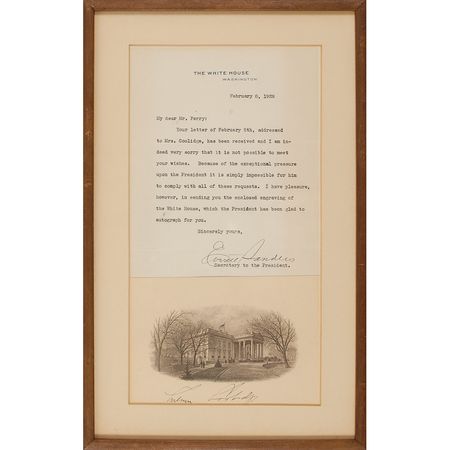 THE WHITE HOUSE
WASHINGTON
February 8, 1928
My dear Mr. Perry:
Your letter of February 5th, addressed
to Mrs. Coolidge, has been received and I am in-
deed very sorry that it is not possible to meet
your wishes. Because of the exceptional pressure
upon the President it is simply impossible for him
to comply with all of these requests. I have pleasure,
however, in sending you the enclosed engraving of
the White House, which the President has been glad to
autograph for you.
Sincerely yours,
Everett Sanders
Secretary to the President.
Calvin Coolidge